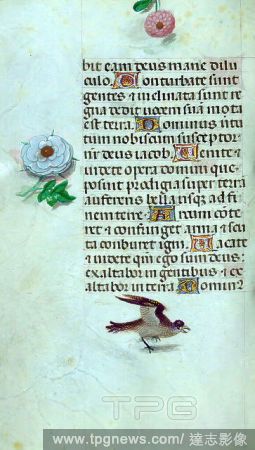 bit eam deus mane dilu
culo. Conturbate sunt
gentes & inclinata sunt re
gna dedit vocem suam mota
est terra. Dominus uir
tutum nobiscum susceptor
nr deus iacob. Uenite &
uidete opera domini que
posuit prodigia super terra
auferens bella usqz ad fi
nem terre. Arcum conte
ret & confringet arma & scu
ta comburet igni. Uacate
& uidete qm ego sum deus:
exaltabor in gentibus & ex
altabor in terra Domin9
TPG
www.tpgnews.com/ 達志影像